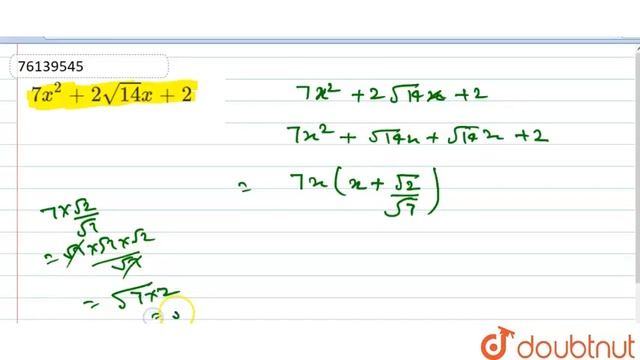 76139545
7x² + 2√14x + 2
7x² + 2√14x + 2
7x² + √14x + √14x + 2
= 7x(x + √2/√7)
7×√2/√7
= √7×√7×√2/√7
= √7×2
=
doubtnut